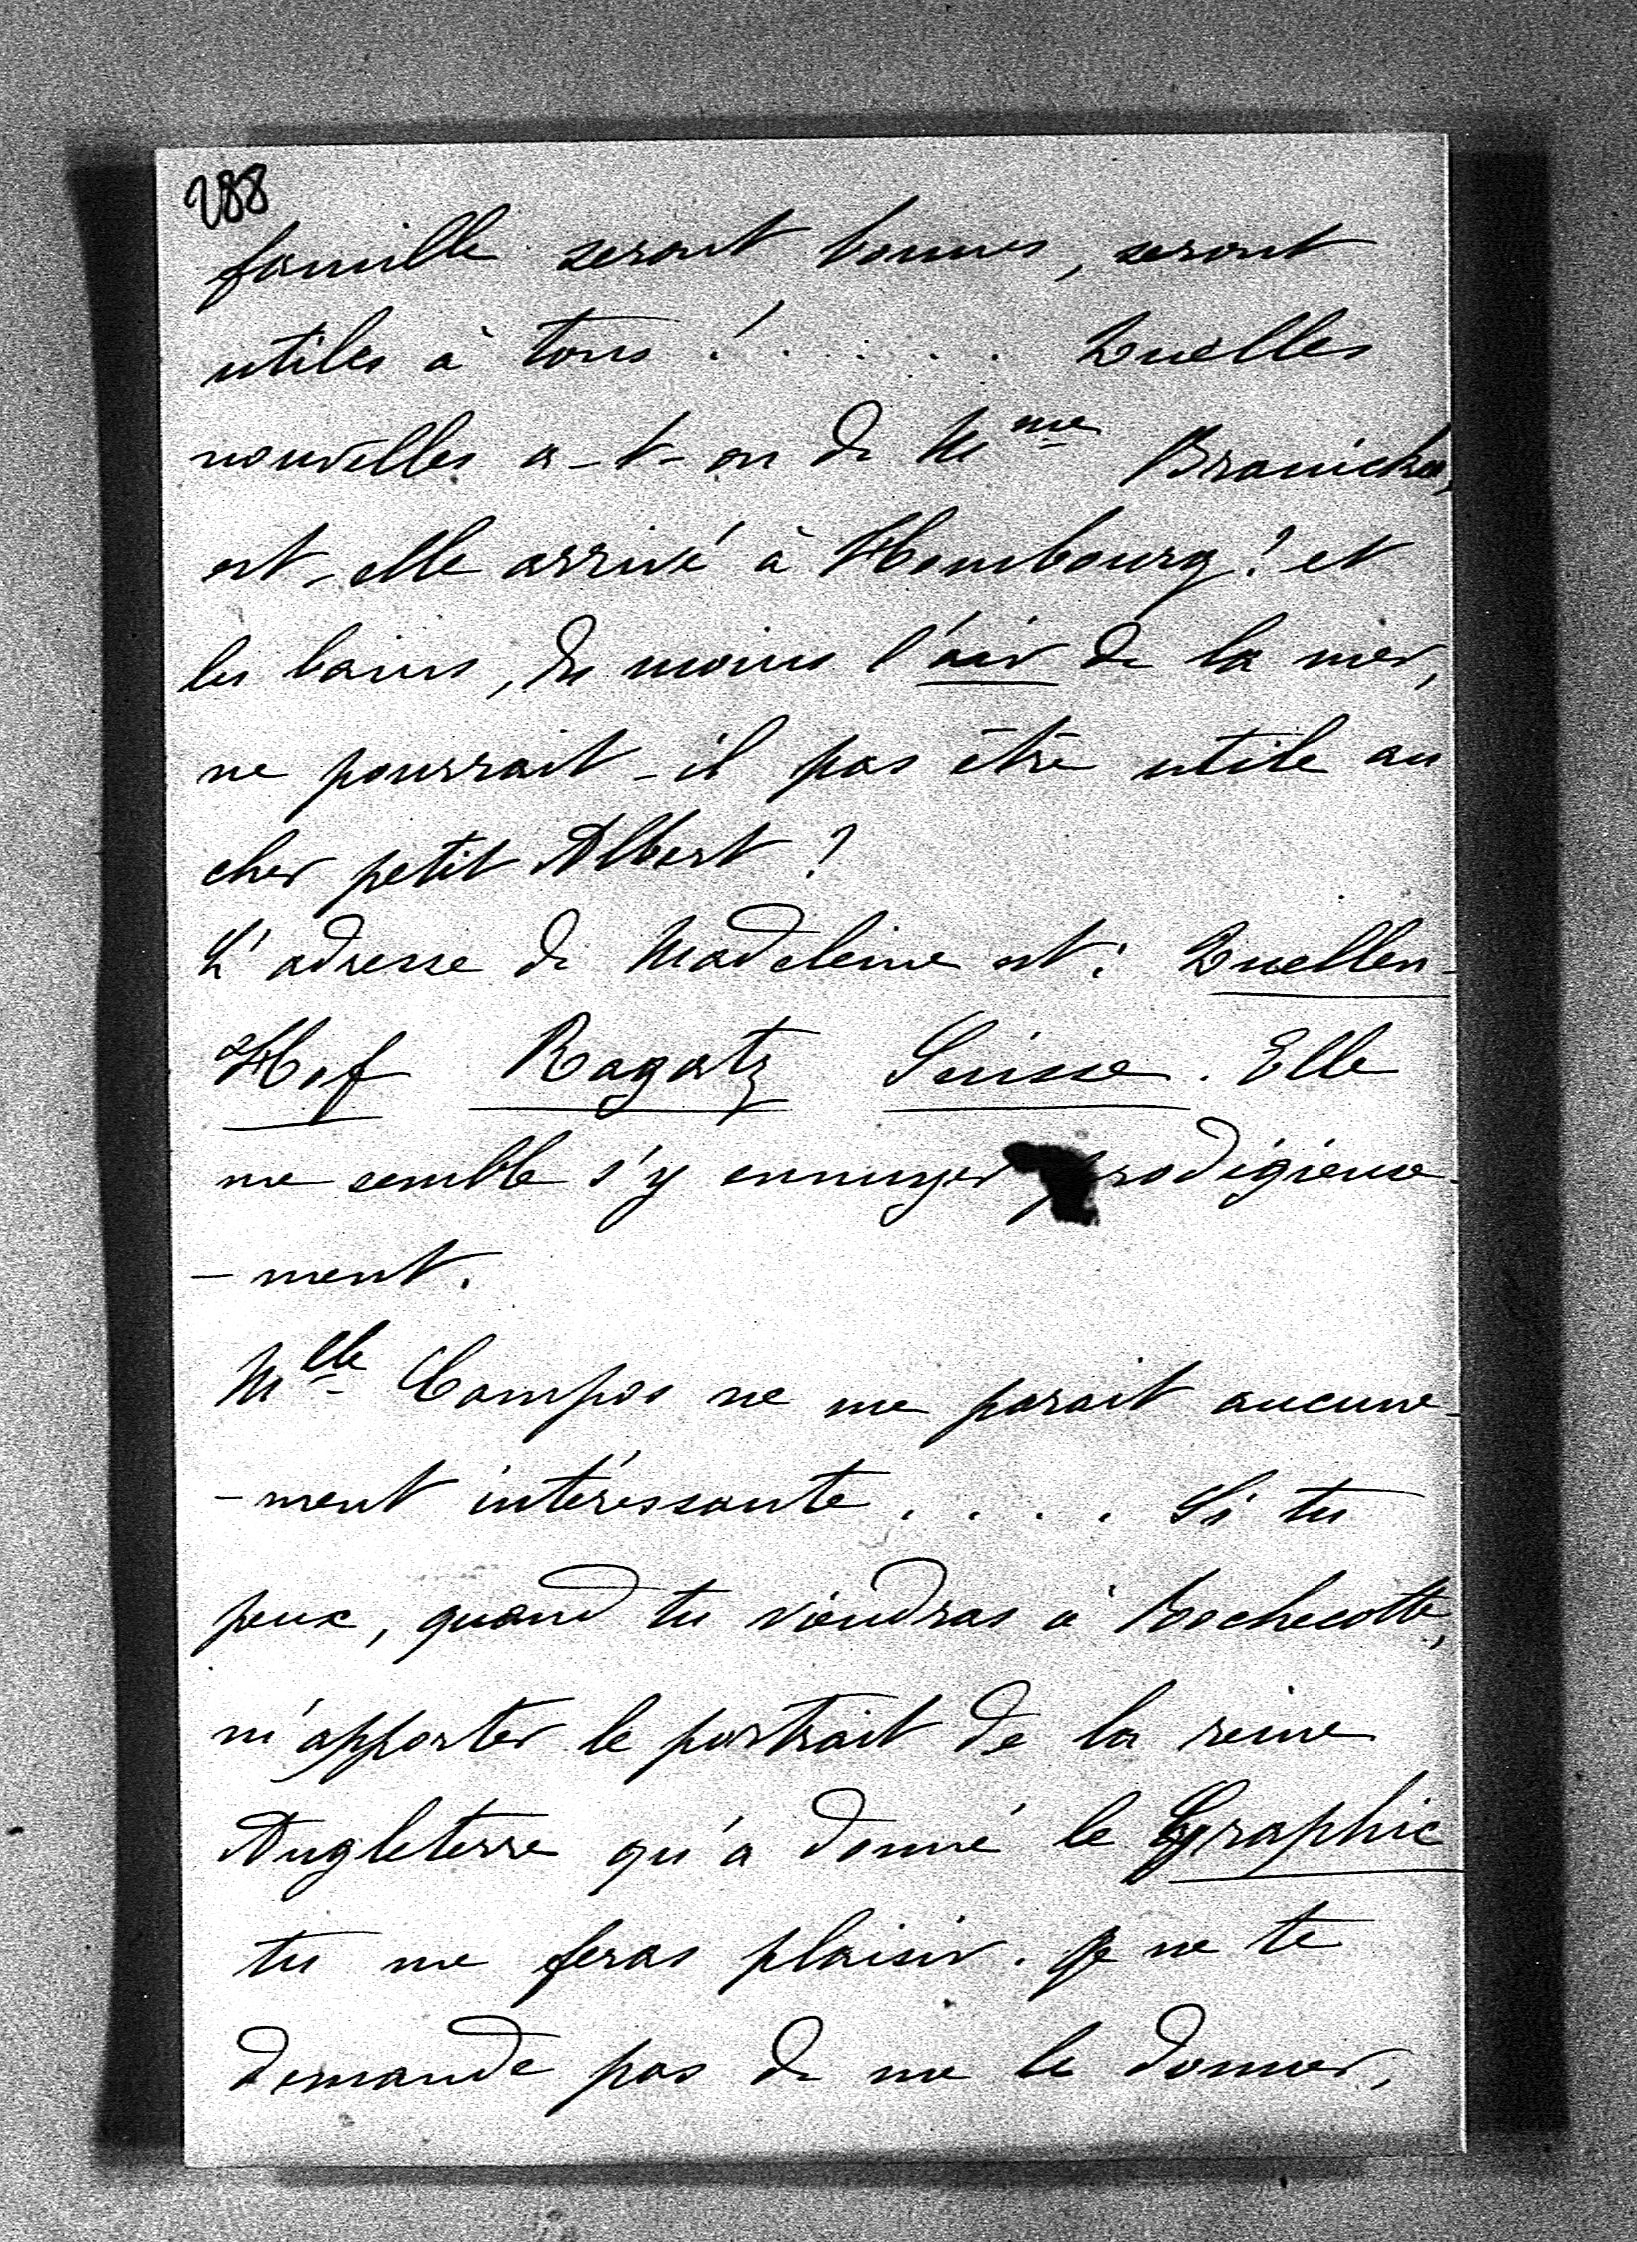 288
famille seront bonnes, seront
utiles à tous ! . . . . . Quelles
nouvelles a-t-on de Mme Branicka,
est-elle arrivé à Hombourg ? et
les bains, du moins l'air de la mer,
ne pourrait-il pas être utile au
cher petit Albert ?
L'adresse de Madeleine est : Quellen-
Hof Ragatz Suisse. Elle
me semble s'y ennuyer prodigieuse-
-ment.
Mlle Campos ne me parait aucune-
-ment intéressante . . . . Si tu
peux, quand tu viendras à Rochecotte,
m'apporter le portrait de la reine
Angleterre qu'a donné le Graphic
tu me feras plaisir. Je ne te
demande pas de me le donner,